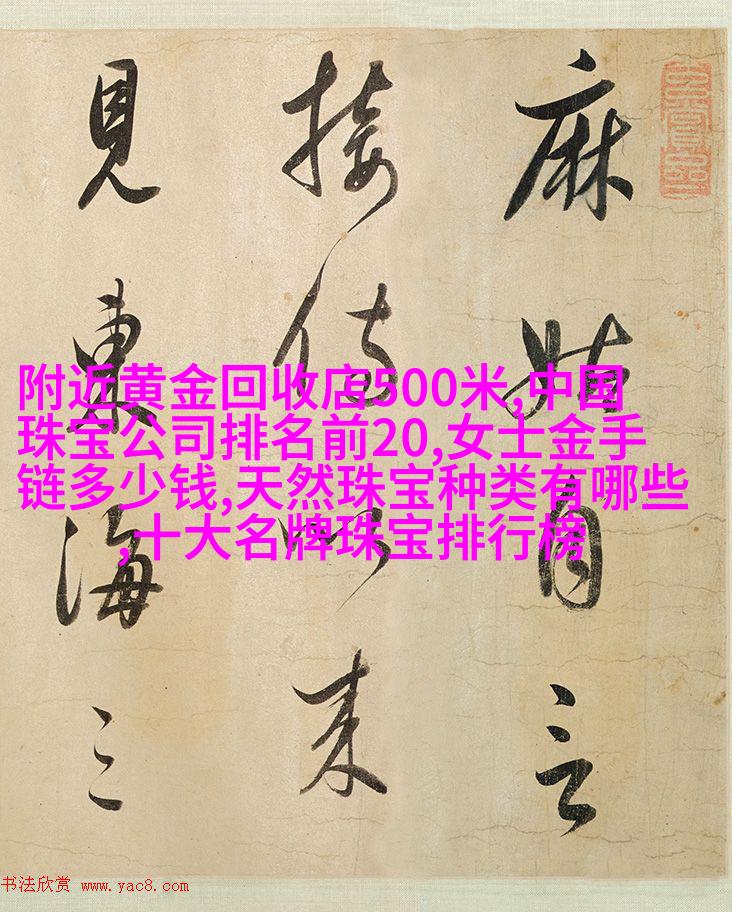 麻姑自言
接侍以来
見東海三
附近黄金回收店500米,中国
珠宝公司排名前20,女士金手
链多少钱,天然珠宝种类有哪些
,十大名牌珠宝排行榜
书法欣赏 www.yac8.com